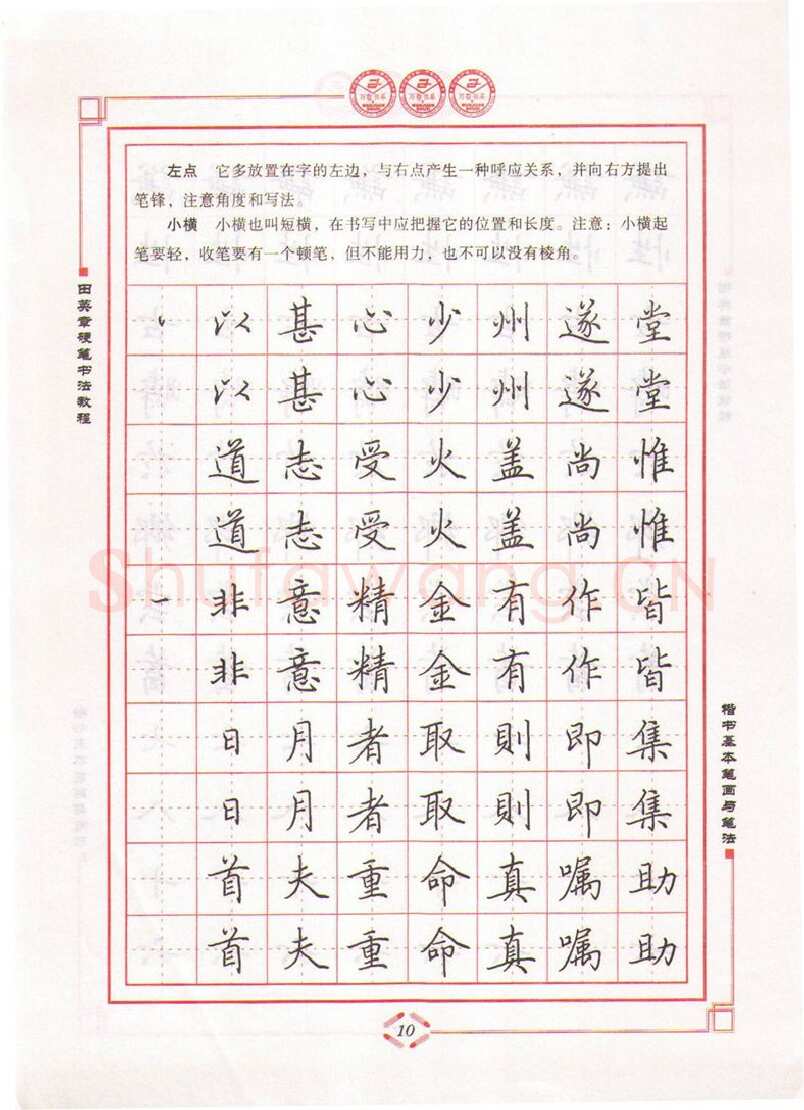 左点 它多放置在字的左边，与右点产生一种呼应关系，并向右方提出
笔锋，注意角度和写法。
小横 小横也叫短横，在书写中应把握它的位置和长度。注意：小横起
笔要轻，收笔要有一个顿笔，但不能用力，也不可以没有棱角。
田英章硬笔书法教程
以甚心少州遂堂
以甚心少州遂堂
道志受火盖尚惟
道志受火盖尚惟
Shufawang.CN
非意精金有作皆
非意精金有作皆
日月者取則即集
日月者取則即集
首夫重命真嘱助
首夫重命真嘱助
楷书基本笔画与笔法
10